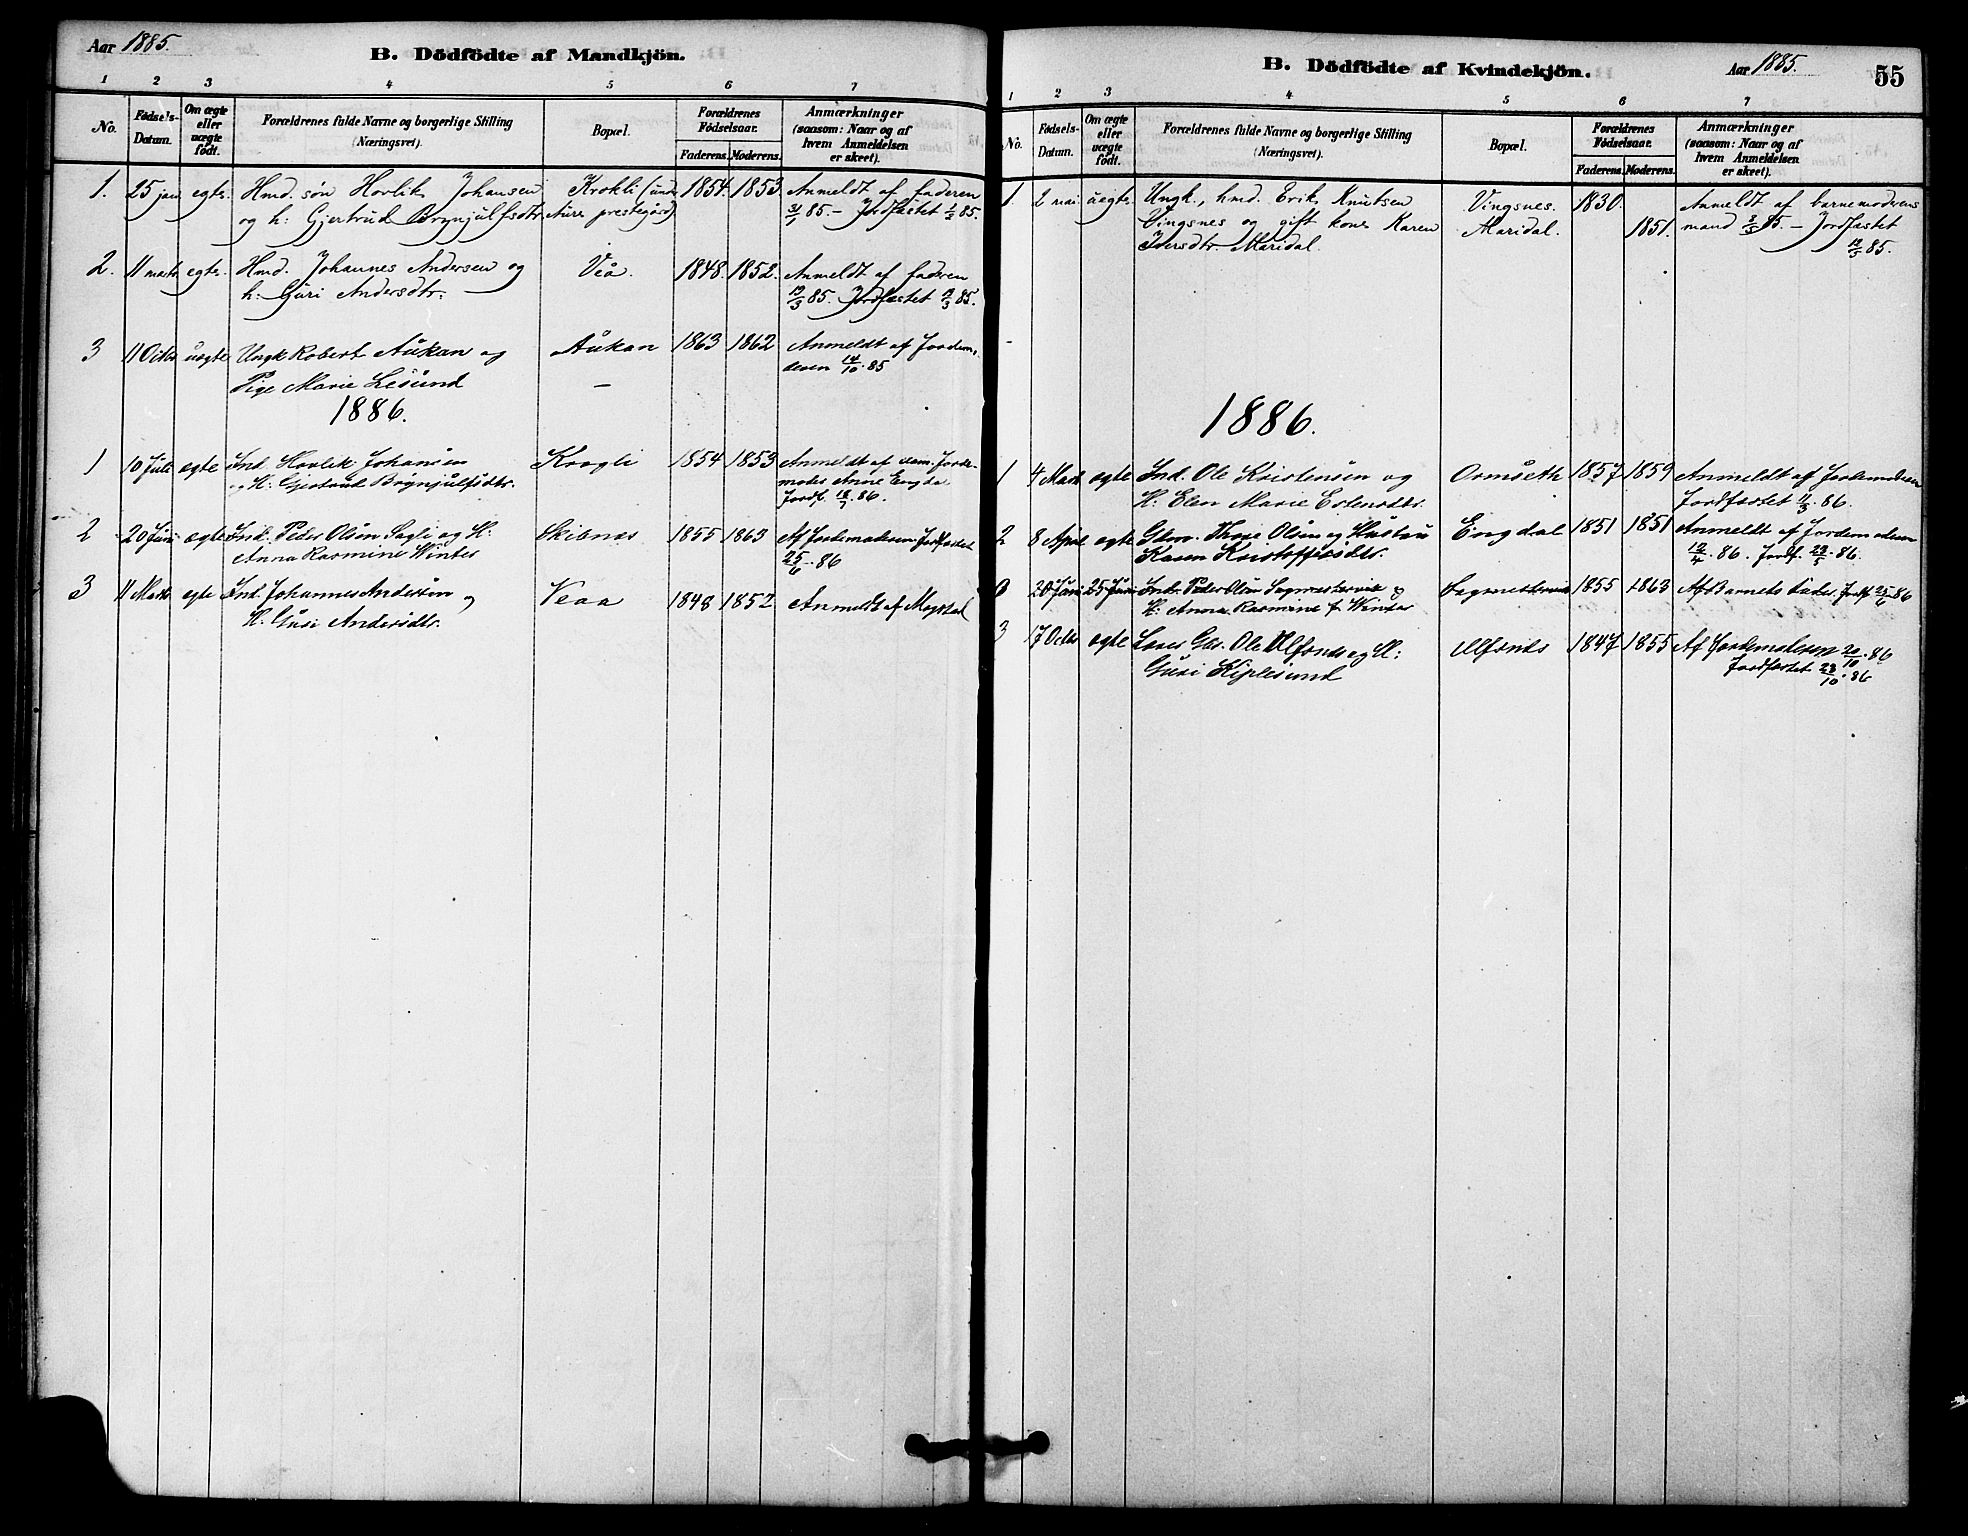 Aar 1885.
B. Dödfödte af Mandkjön.
1 2 3 4 5 6 7
No. Fødsels-Datum. Om ægte eller uægte født. Forældrenes fulde Navne og borgerlige Stilling (Næringsvei). Bopæl. Forældrenes Fødselsaar. Faderens. Moderens. Anmærkninger (saasom: Naar og af hvem Anmeldelsen er skeet).
1. 25 jan egte. Hmd. søn Hovlik Johansen Krokli (under 1854. 1853. Anmeldt af faderen
og h: Gjertrud Brynjulfsdtr. Aure prestegård) 31/1 85. – Jordfæstet 85.
2. 11 marts egte. Hmd. Johannes Andersen og Veå. 1848. 1852. Anmeldt af faderen
h: Guri Andersdtr. 19/3 85. Jordfæstet 19/3 85.
3 11 Octbr uegte Ungk Robert Aukan og Aukan 1863 1862 Anmeldt af Jordem.
Pige Marie Lesund – deren 14/10 85
1886.
1 10 Juli egte Ind. Hovlik Johansen Krogli 1854 1853 Anmeldt af Jorde-
og H: Gjertrud Brynjulfsdtr. moder Anne Engdal
Jordf. 86.
2 20 Juni egte Ind. Peder Olsen Sagli og H: Skibnes 1855 1863 Af Jordemoderen Jordfæstet
Anna Rasmine Winter 25/6 86
3 11 Marts egte Ind. Johannes Andersen og Veaa 1848 1852 Anmeldt af Magstad
H. Guri Andersdtr.
B. Dödfödte af Kvindekjön.
Aar 1885.
55
1 2 3 4 5 6 7
No. Fødsels-Datum. Om ægte eller uægte født. Forældrenes fulde Navne og borgerlige Stilling (Næringsvei). Bopæl. Forældrenes Fødselsaar. Faderens. Moderens. Anmærkninger (saasom: Naar og af hvem Anmeldelsen er skeet).
1. 2 mai uegte. Ungk., hmd. Erik Knutsen Vingsnes. 1830. Anmeldt af barnemoderens
Vingsnes og gift kone Karen Maridal. 1851. mand 85. – Jordfæstet
Iversdtr. Maridal. 85.
1886.
1 4 Marts egte Ind. Ole Kristensen og Ormseth 1857 1859 Anmeldt af Jordemoderen
H. Elen Marie Estensdtr. Jordfæstet 11/3 86.
2 8 April egte Olsen og Hustru Engdal 1851 1851 Anmeldt af Jordemoderen
Karen Kristoffersdtr. 12/4 86. Jordf. 86.
0 20 Juni 25 Juni Ind. Peder Olsen og 1855 1863 Af Barnets Fader. Jordf. 25/6 86
H. Anna Rasmine f. Winter
3 17 Octbr egte Ole Ulfsnes og H: Ulfsnes 1847 1855 Af Jordemoderen 20/10 86
Guri Kiplesund Jordfæstet 23/10 86